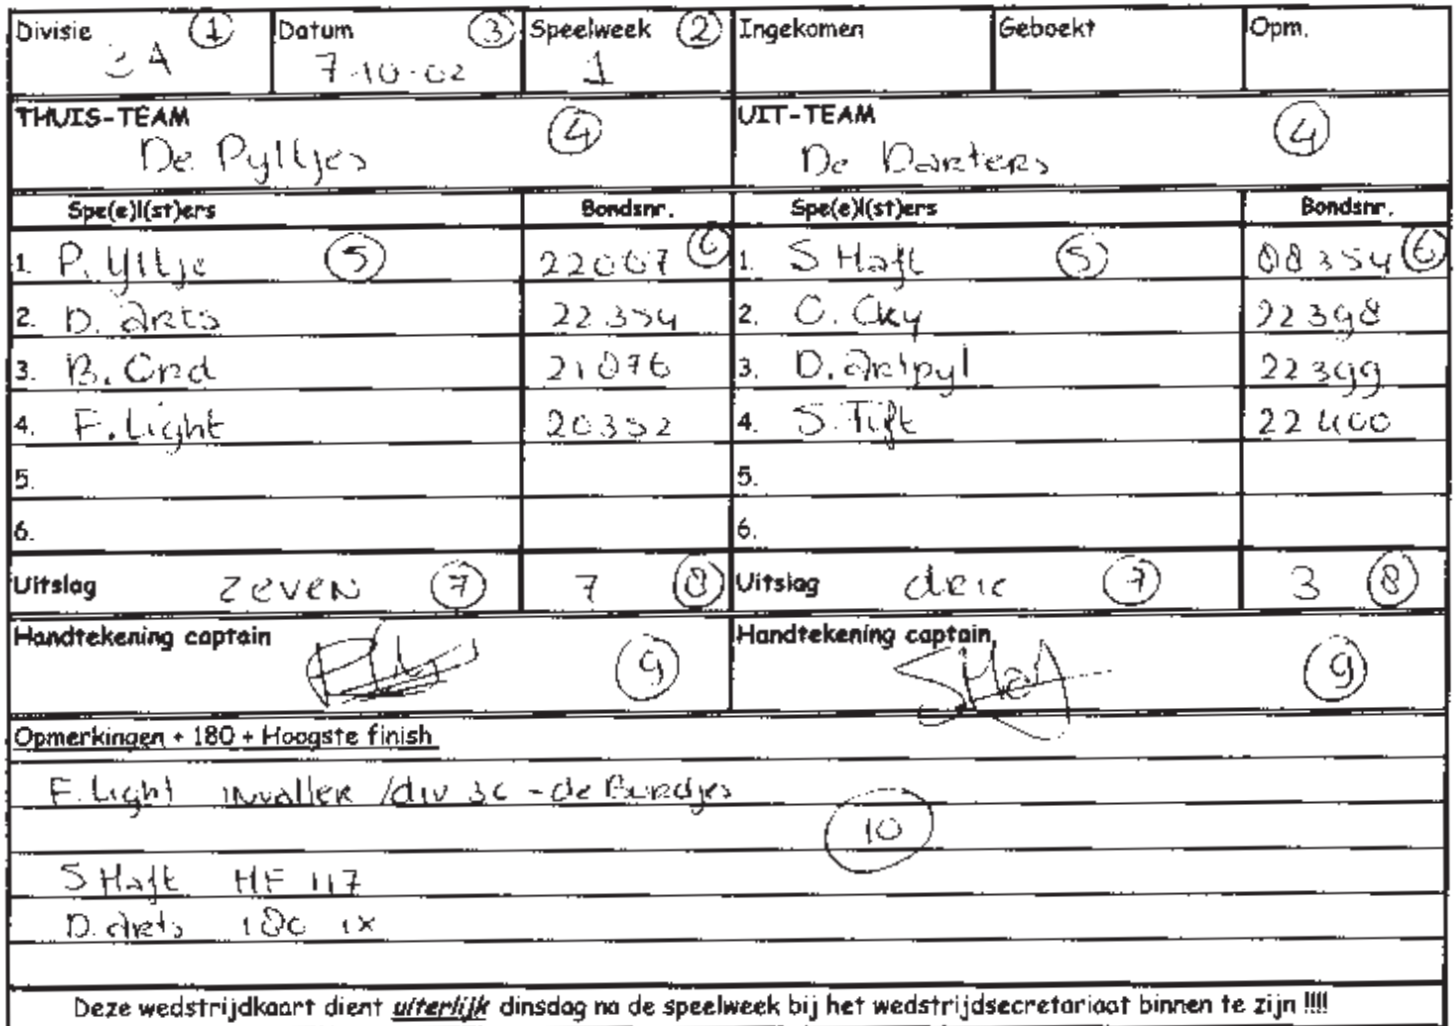 Divisie 1 Datum 3 Speelweek 2 Ingekomen Geboekt Opm.
3A 7-10-02 1
THUIS-TEAM 4 UIT-TEAM 4
De Pyltjes De Darters
Spe(e)l(st)ers Bondsnr. Spe(e)l(st)ers Bondsnr.
1. P. Yltje 5 22007 6 1. S Haft 5 08354 6
2. D. arts 22354 2. O. Cky 22398
3. B. Ord 21076 3. D. artpyl 22399
4. F. Light 20352 4. S. Tift 22400
5. 5.
6. 6.
Uitslag zeven 7 7 8 Uitslag drie 7 3 8
Handtekening captain 9 Handtekening captain 9
Opmerkingen + 180 + Hoogste finish
F. Light invaller /div 3c - de Burdjes
10
S Haft HF 117
D. arts 180 1x
Deze wedstrijdkaart dient uiterlijk dinsdag na de speelweek bij het wedstrijdsecretariaat binnen te zijn !!!!